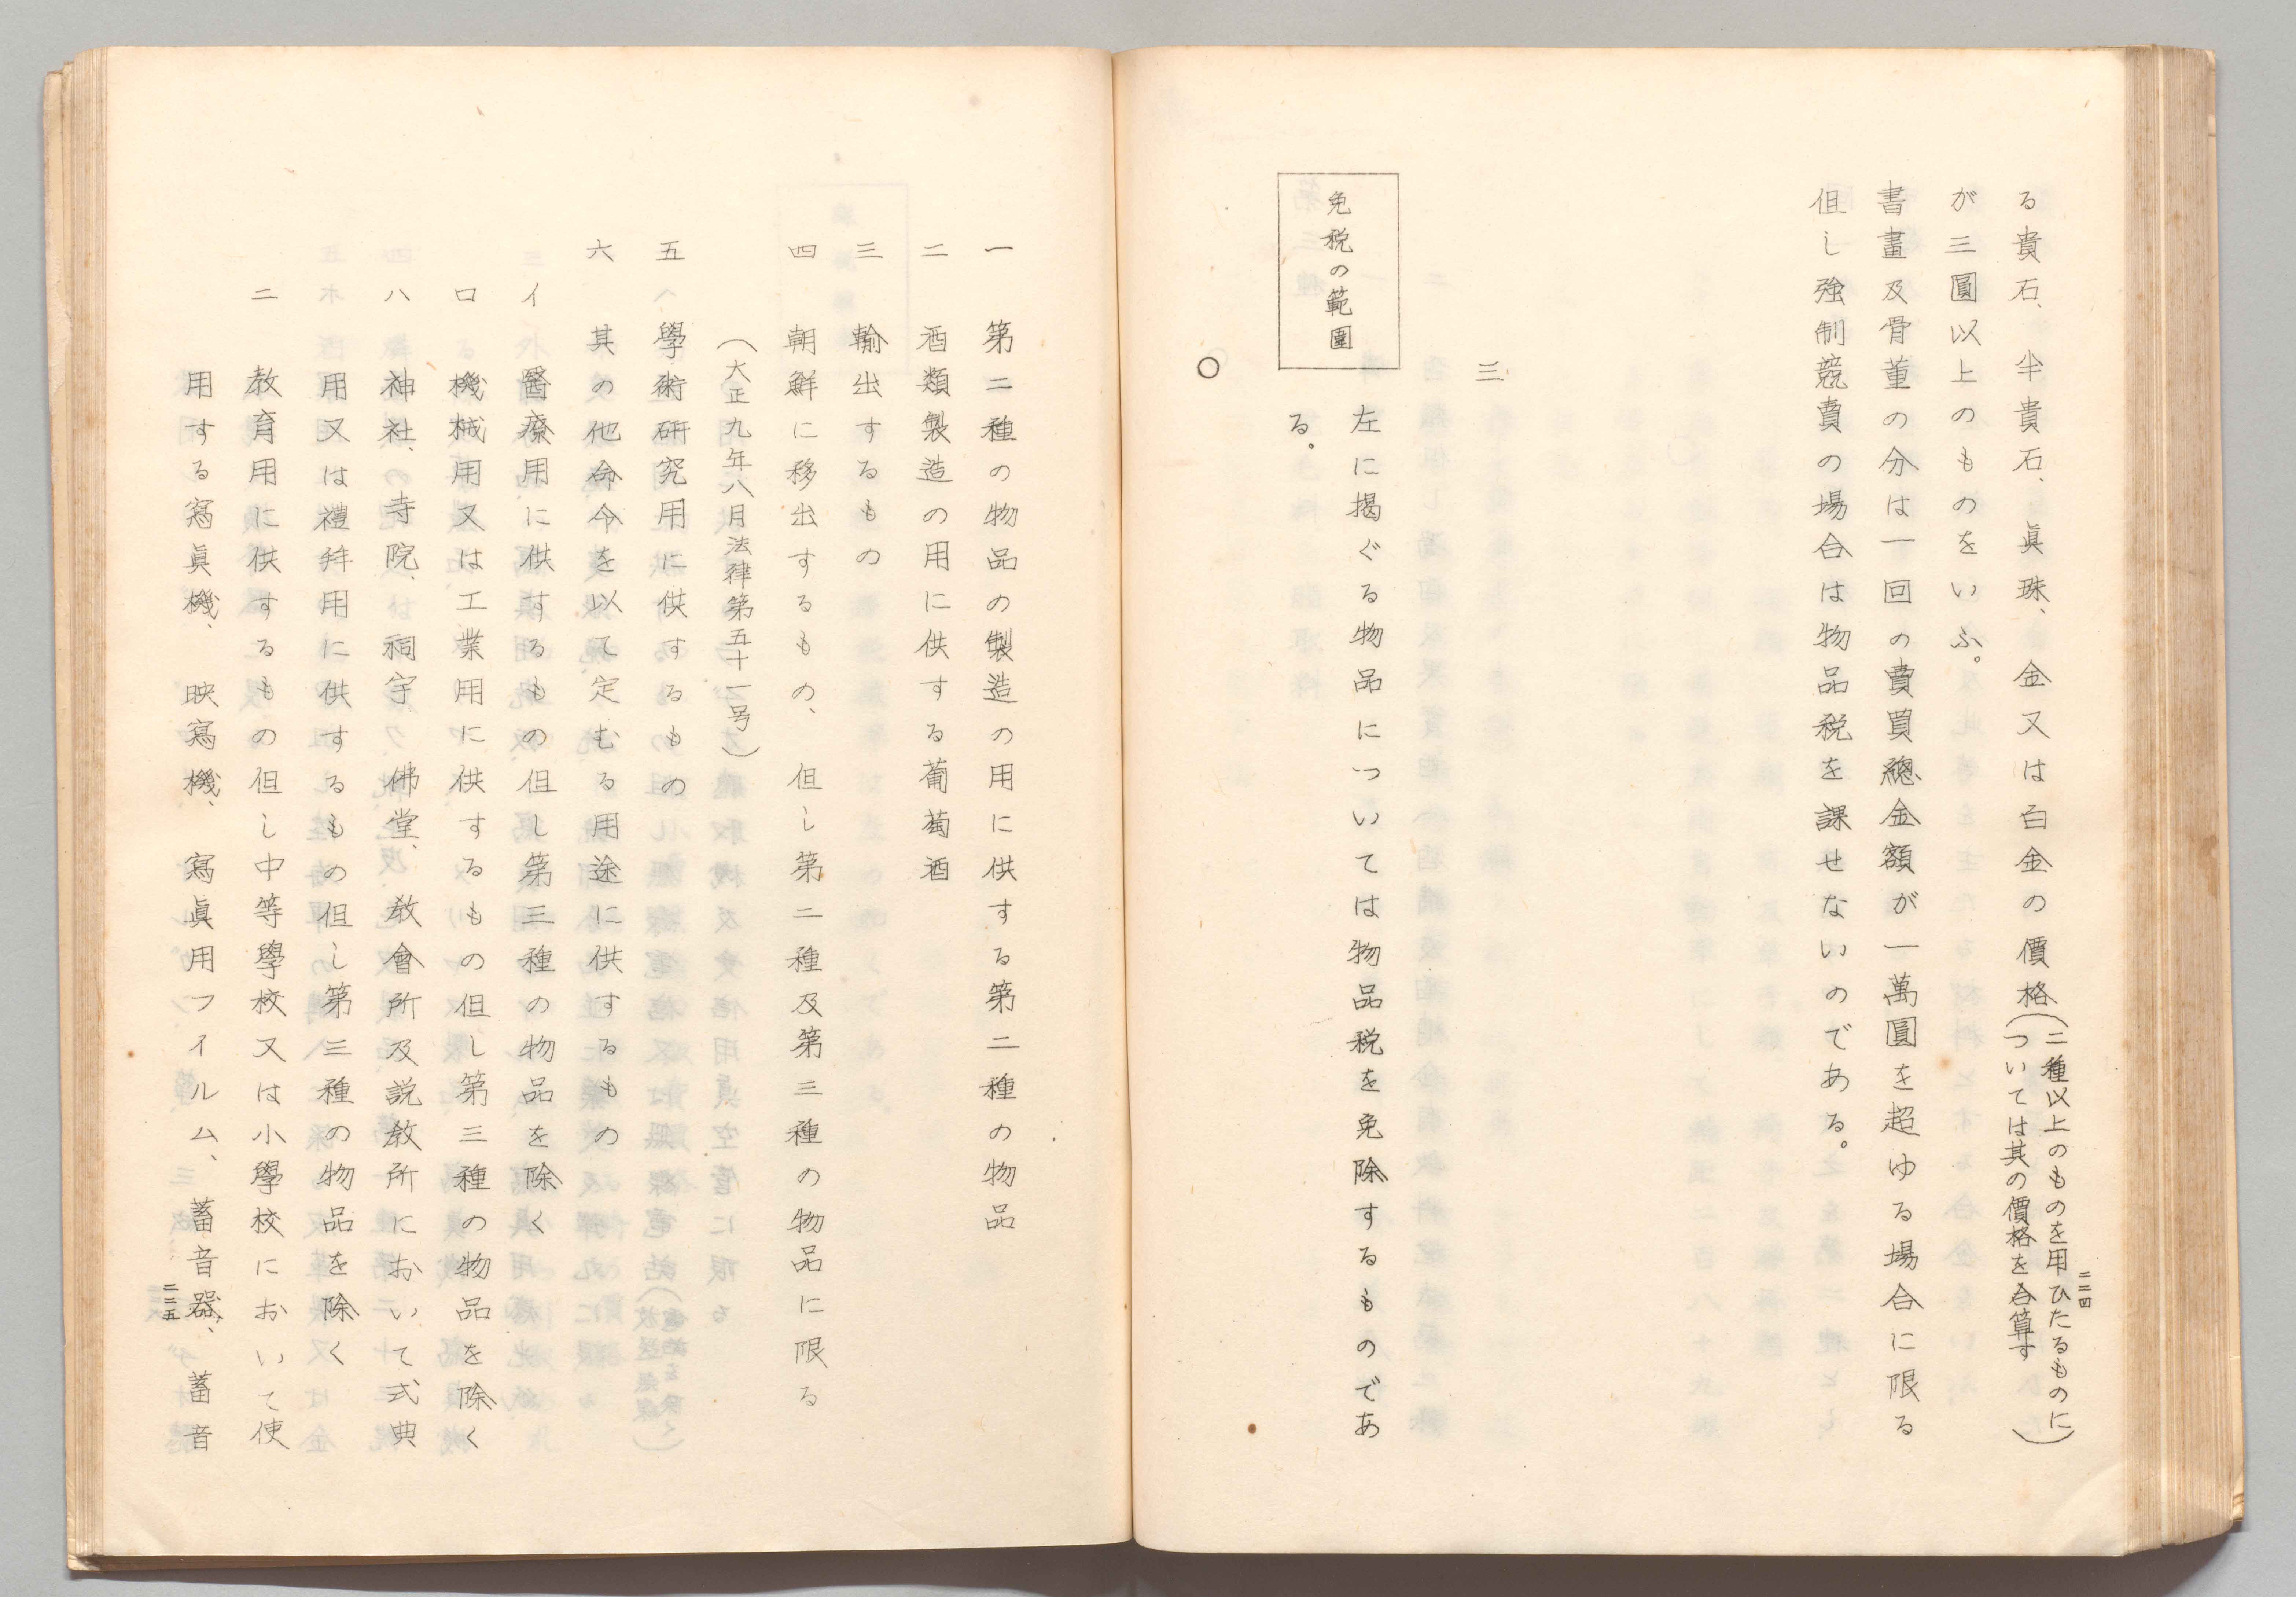 る貴石、半貴石、眞珠、金又は白金の價格(二種以上のものを用ひたるものに
ついては其の價格を合算す)
が三圓以上のものをいふ。
書畫及骨董の分は一回の賣買總金額が一萬圓を超ゆる場合に限る
但し強制競賣の場合は物品税を課せないのである。
三
免税の範圍
左に揭ぐる物品については物品税を免除するものであ
る。
○
二二四
一 第二種の物品の製造の用に供する第二種の物品
二 酒類製造の用に供する葡萄酒
三 輸出するもの
四 朝鮮に移出するもの、但し第二種及第三種の物品に限る
(大正九年八月法律第五十一号)
五 學術研究用に供するもの
六 其の他命令を以て定むる用途に供するもの
イ 醫療用に供するもの但し第三種の物品を除く
ロ 機械用又は工業用に供するもの但し第三種の物品を除く
ハ 神社、寺院、祠宇、佛堂、教會所及説教所において式典
用又は禮拜用に供するもの但し第三種の物品を除く
ニ 教育用に供するもの但し中等學校又は小學校において使
用する寫眞機、映寫機、寫眞用フイルム、蓄音器、蓄音
二二五